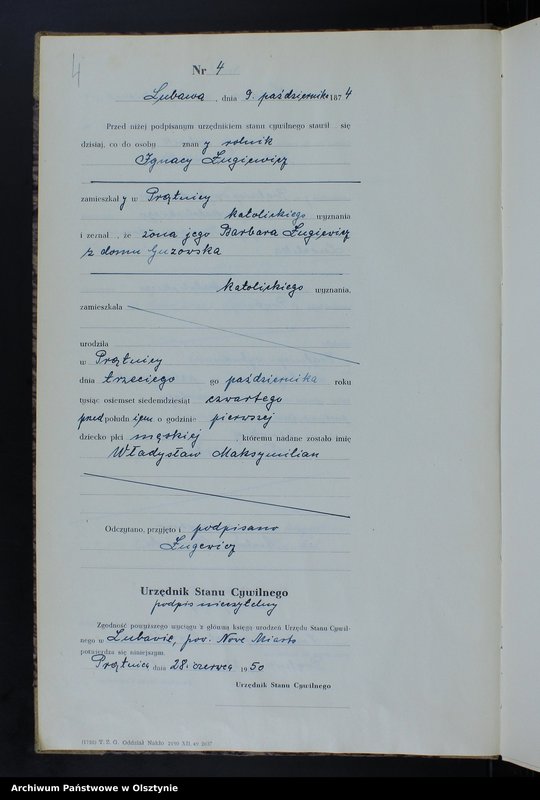 4
Nr 4
Lubawa, dnia 9. października 1874
Przed niżej podpisanym urzędnikiem stanu cywilnego stawił się
dzisiaj, co do osoby znany rolnik
Ignacy Ługiewicz
zamieszkały w Prątnicy
katolickiego wyznania
i zeznał, że żona jego Barbara Ługiewicz
z domu Guzowska
katolickiego wyznania,
zamieszkała
urodziła
w Prątnicy
dnia trzeciego go października roku
tysiąc osiemset siedemdziesiąt czwartego
przedpołudniem o godzinie pierwszej
dziecko płci męskiej, któremu nadane zostało imię
Władysław Maksymilian
Odczytano, przyjęto i podpisano
Ługewicz
Urzędnik Stanu Cywilnego
podpis nieczytelny
Zgodność powyższego wyciągu z główną księgą urodzeń Urzędu Stanu Cywil-
nego w Lubawie, pow. Nowe Miasto
potwierdza się niniejszym.
Prątnica dnia 28. czerwca 1950
Urzędnik Stanu Cywilnego
(1726) T. Z. G. Oddział Nakło 2190 XII 49
Archiwum Państwowe w Olsztynie